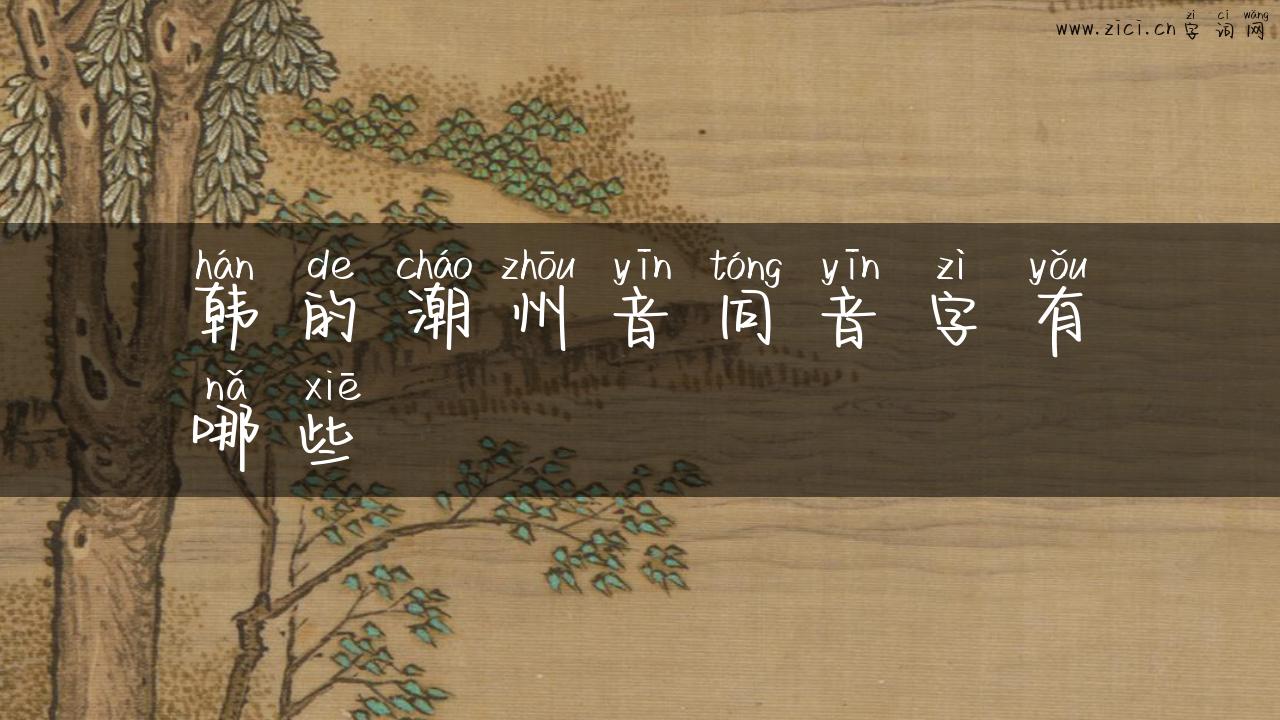 zì cí wǎng
www.zici.cn 字词网
hán de cháo zhōu yīn tóng yīn zì yǒu
韩的潮州音同音字有
nǎ xiē
哪些